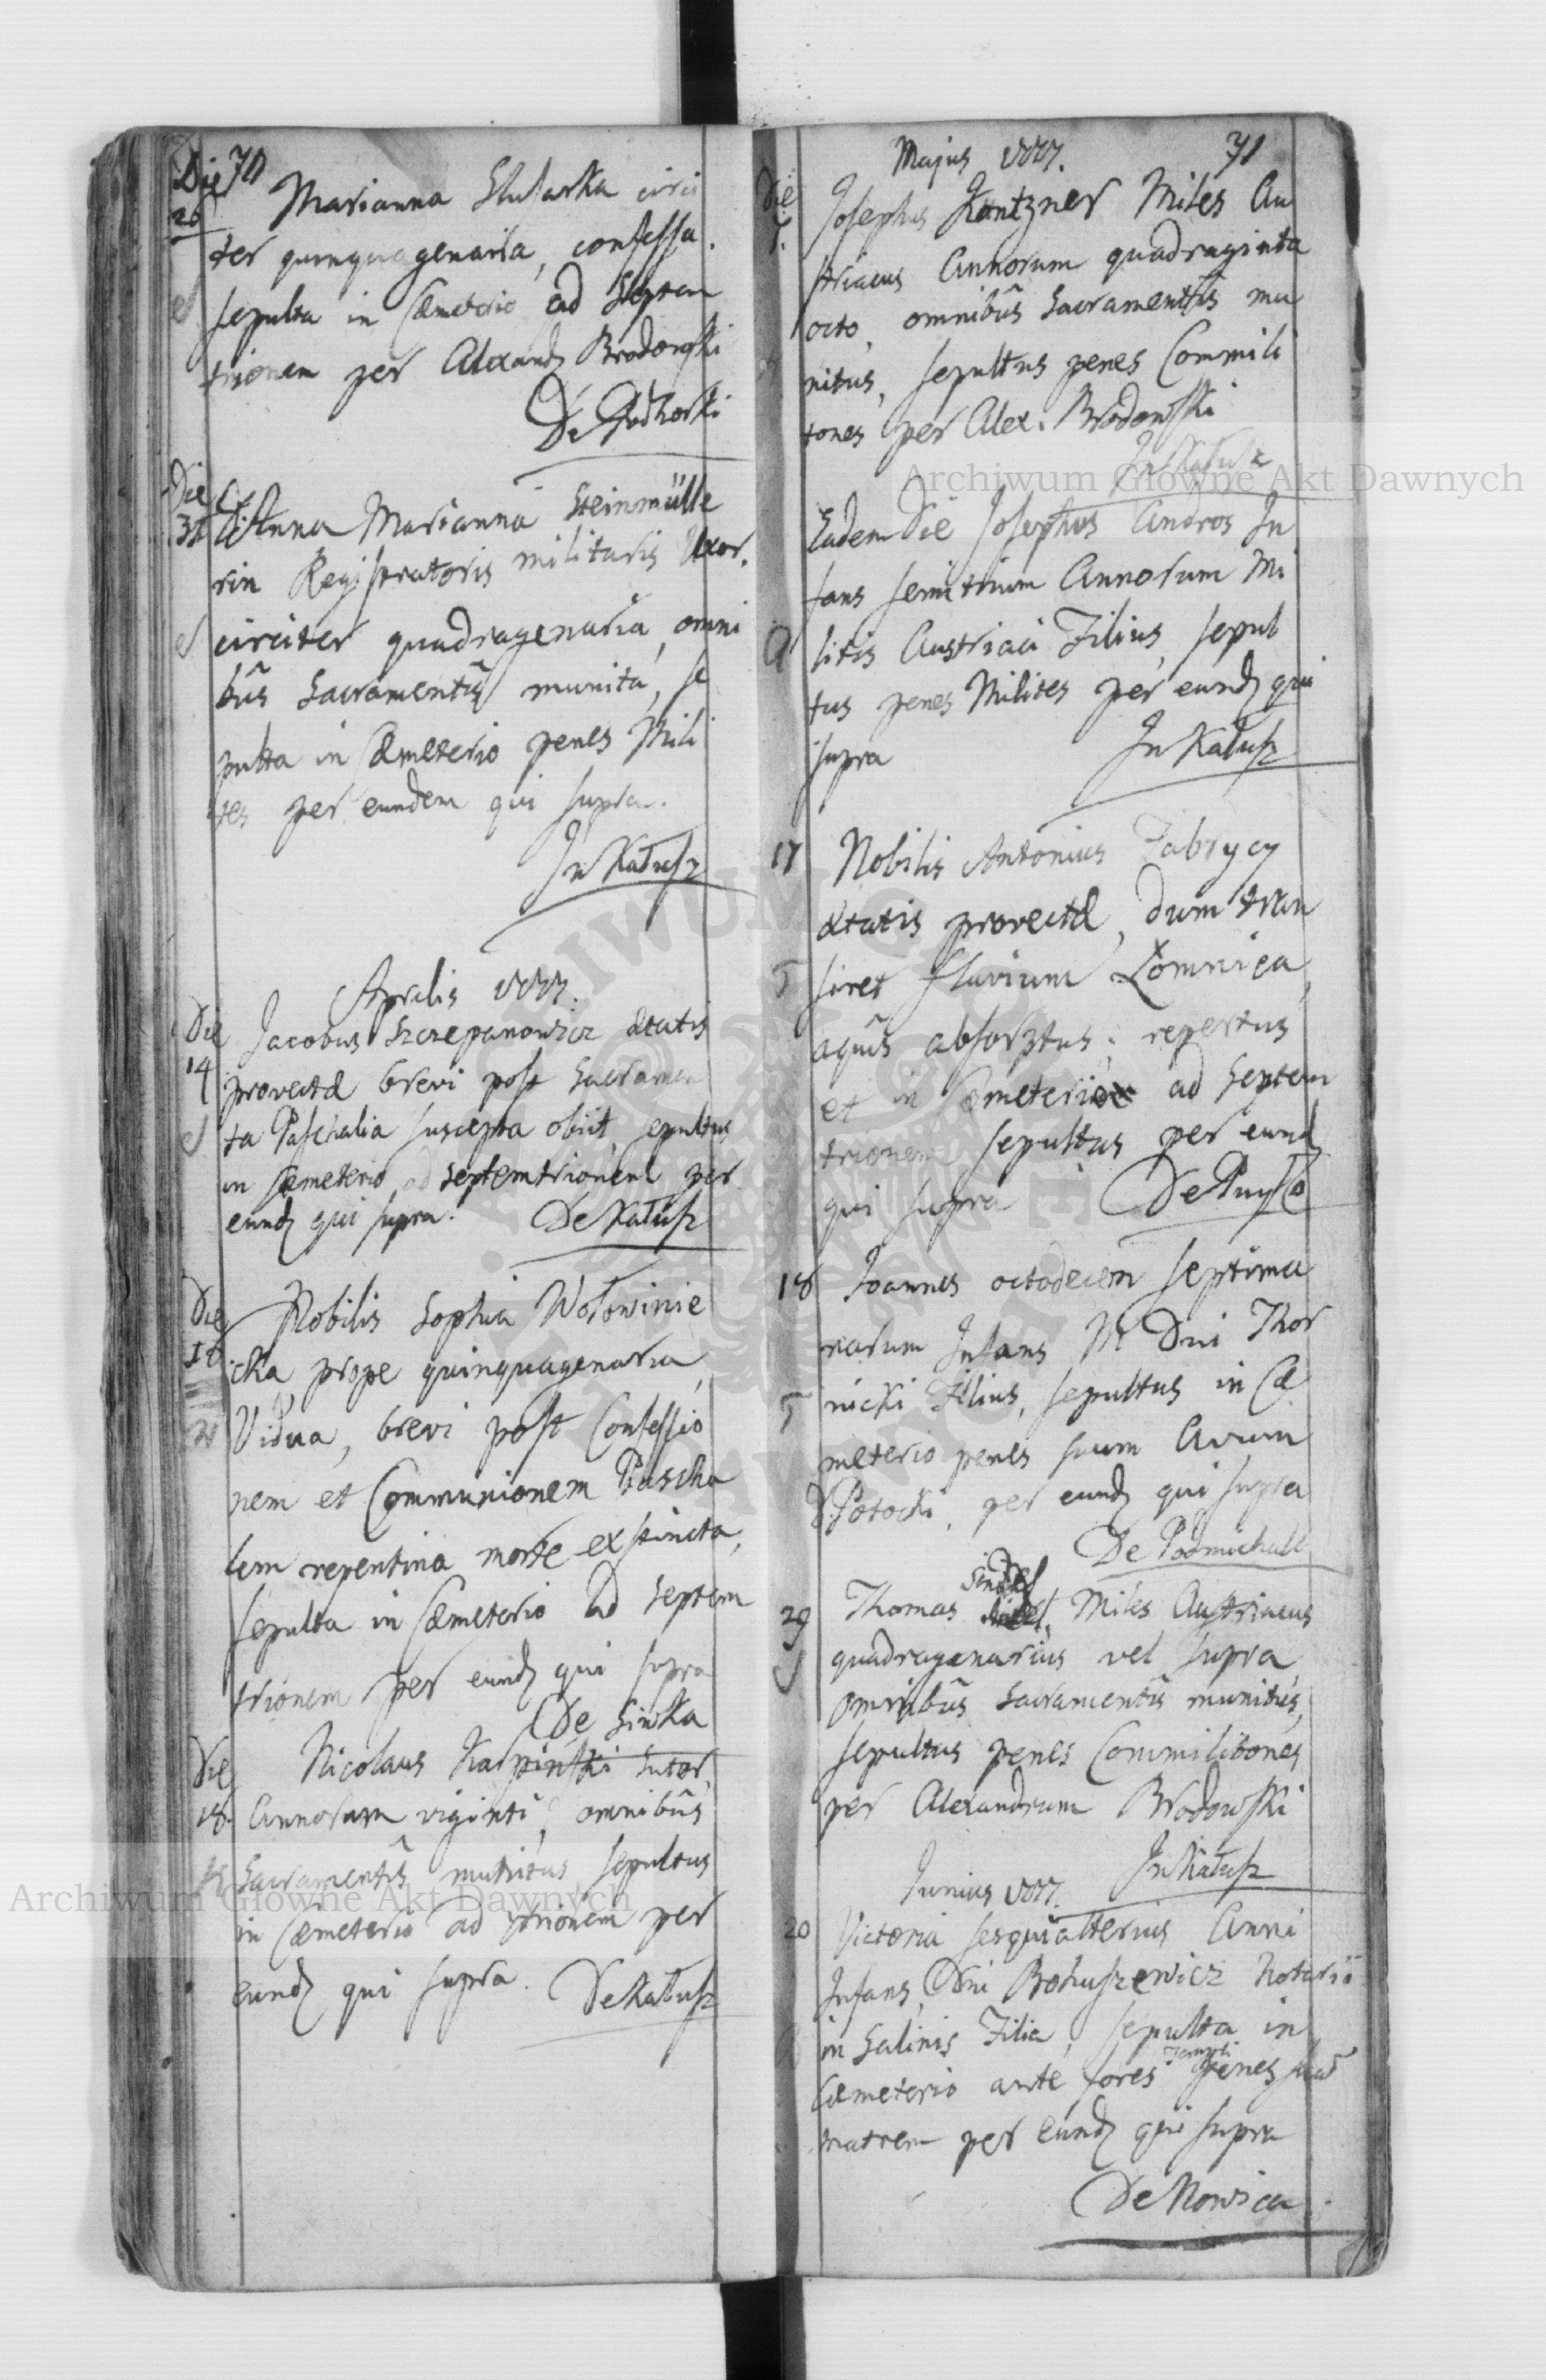 Die 70
26 Marianna Slusarka circi
ter quinquagenaria, confessa.
sepulta in Cæmeterio ad Septem
trionem per Alexandr Brodowski
De Podhorki
Die
31 Anna Marianna Steinmülle
rin Registratoris militaris Uxor.
circiter quadragenaria, omni
bus Sacramentis munita, se
pulta in Cæmeterio penes Mili
tes per eundem qui supra.
In Kałusz
Aprilis 1777.
Die Jacobus Szczepanowicz ætatis
14 provectæ brevi post Sacramen
ta Paschalia suscepta obiit, sepultus
in Cæmeterio ad Septemtrionem per
eund qui supra. De Kałusz
Die Nobilis Sophia Wołowinie
16 cka, prope quinquagenaria,
Vidua, brevi post Confessio
nem et Communionem Pascha
lem repentina morte extincta,
sepulta in Cæmeterio ad Septem
trionem per eund qui supra
De Siwka
Die Nicolaus Karpinski Sutor,
18. Annorum viginti, omnibus
Sacramentis munitus, sepultus
in Cæmeterio ad 7trionem per
eund qui supra. De Kałusz
Majus 1777. 71
Die Josephus Kantzner Miles Au
7. striacus Annorum quadraginta
octo, omnibus Sacramentis mu
nitus, sepultus penes Commili
tones per Alex. Brodowski
In Kałusz
Eadem Die Josephus Andros In
fans semitrium Annorum Mi
litis Austriaci Filius, sepul
tus penes Milites per eund qui
supra In Kałusz
17 Nobilis Antonius Fabrycy
ætatis provectæ, dum tran
siret fluvium Łomnica,
aquis absorptus; repertus
et in Cæmeterio ad Septem
trionem sepultus per eund
qui supra De
18 Joannes octodecem septima
narum Infans M Dni Thor
nicki Filius, sepultus in Cæ
meterio penes suum Avum
D. Potocki, per eund qui supra
De Podmichale
Sindel
29 Thomas Miles Austriacus
quadragenarius vel supra
omnibus Sacramentis munitus,
sepultus penes Commilitones
per Alexandrum Brodowski
In Kałusz
Junius 1777.
20 Victoria sesquialterius Anni
Infans, Dni Bohuszewicz Notarii
in Salinis Filia, sepulta in
Templi
Cæmeterio ante fores penes suã
matrem per eund qui supra
De Nowica
Archiwum Główne Akt Dawnych
Archiwum Główne Akt Dawnych